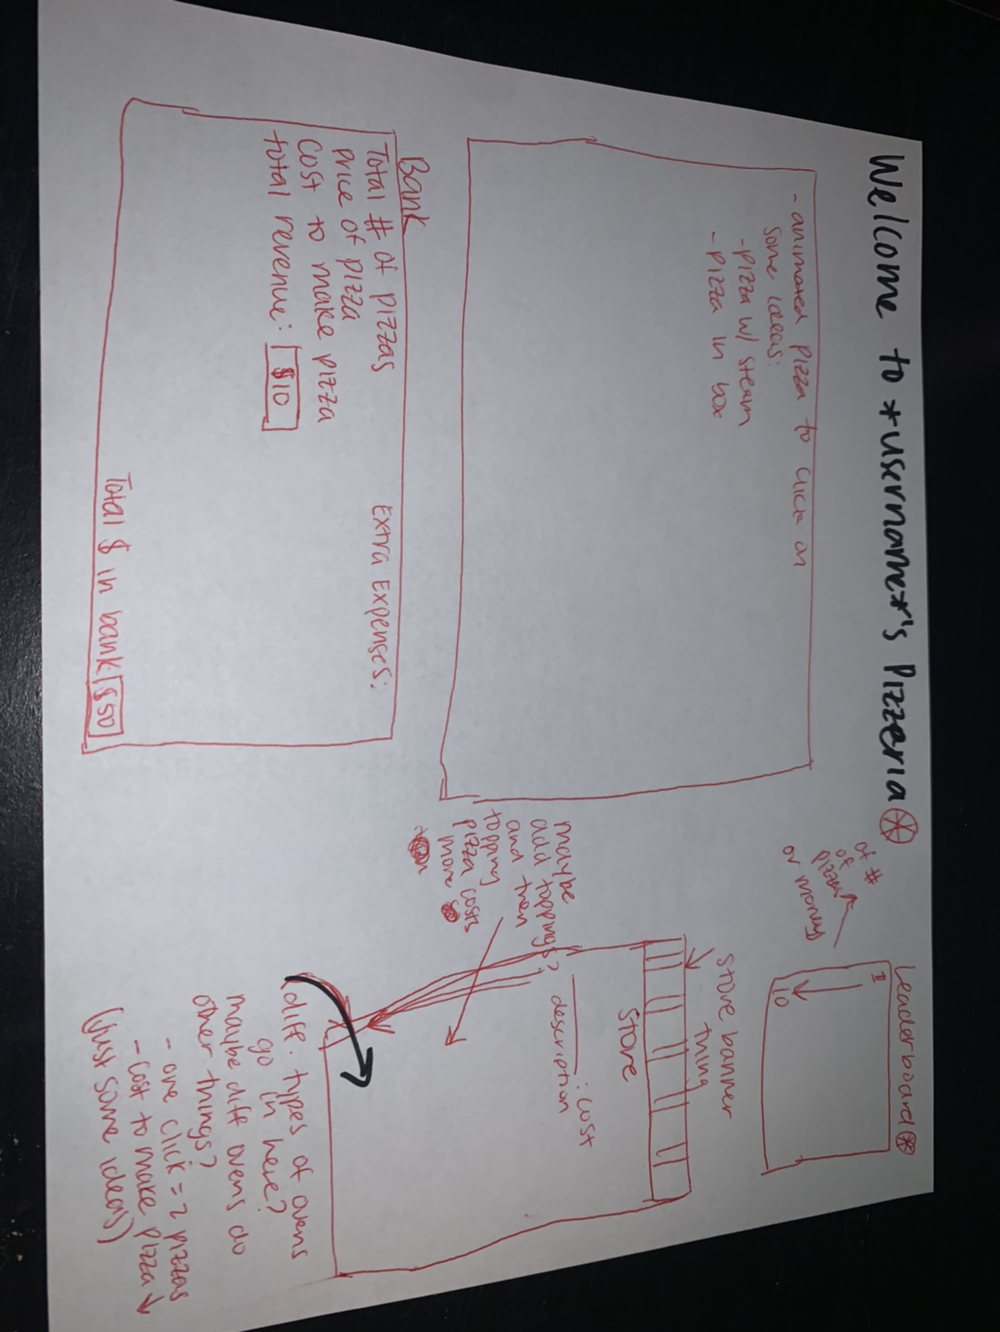 Welcome to *username*'s Pizzeria
- animated pizza to click on
some ideas:
- pizza w/ steam
- pizza in box
Leaderboard
1
10
of #
of
pizzas
or money
Bank
Total # of pizzas
price of pizza
Cost to make pizza
total revenue: $10
Extra Expenses:
Total $ in bank: $50
Store banner
thing
Store
: cost
description
maybe
add toppings?
and then
topping
pizza costs
more
(diff. types of ovens
go in here?
maybe diff ovens do
other things?
- one click = 2 pizzas
- cost to make pizza ↓
(just some ideas)